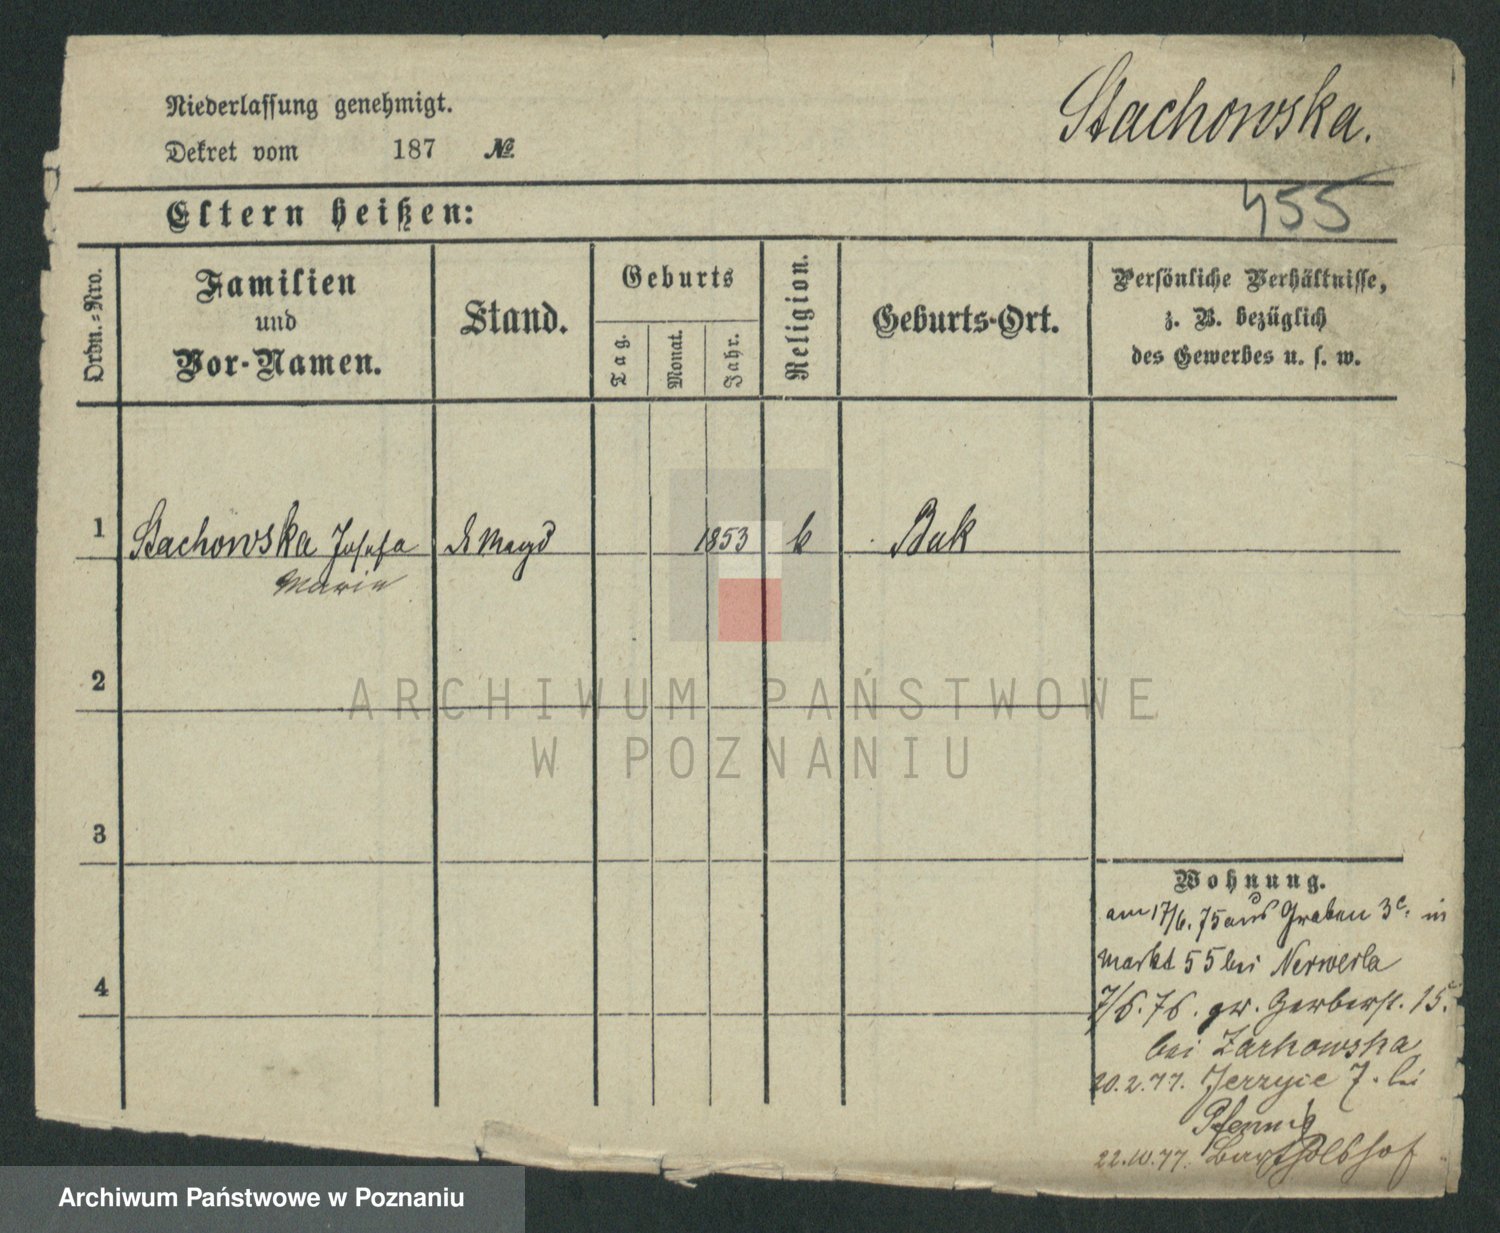 Niederlassung genehmigt.
Dekret vom 187 №
Stachowska.
455
Eltern heißen:
Ordn.-Nro.
Familien
und
Vor-Namen.
Stand.
Geburts
Tag.
Monat.
Jahr.
Religion.
Geburts-Ort.
Persönliche Verhältnisse,
z. B. bezüglich
des Gewerbes u. s. w.
1 Stachowska Josefa 1853 k Buk
Marie
2
3
4
ARCHIWUM PAŃSTWOWE
W POZNANIU
Wohnung.
am 17/6. 75 aus Graben 3c. in
Markt 55 bei
7/6. 76. gr. Gerberst. 15.
bei
20.2.77. Jerzyce 7. bei
Pfennig
22.10.77. Bartholdshof
Archiwum Państwowe w Poznaniu